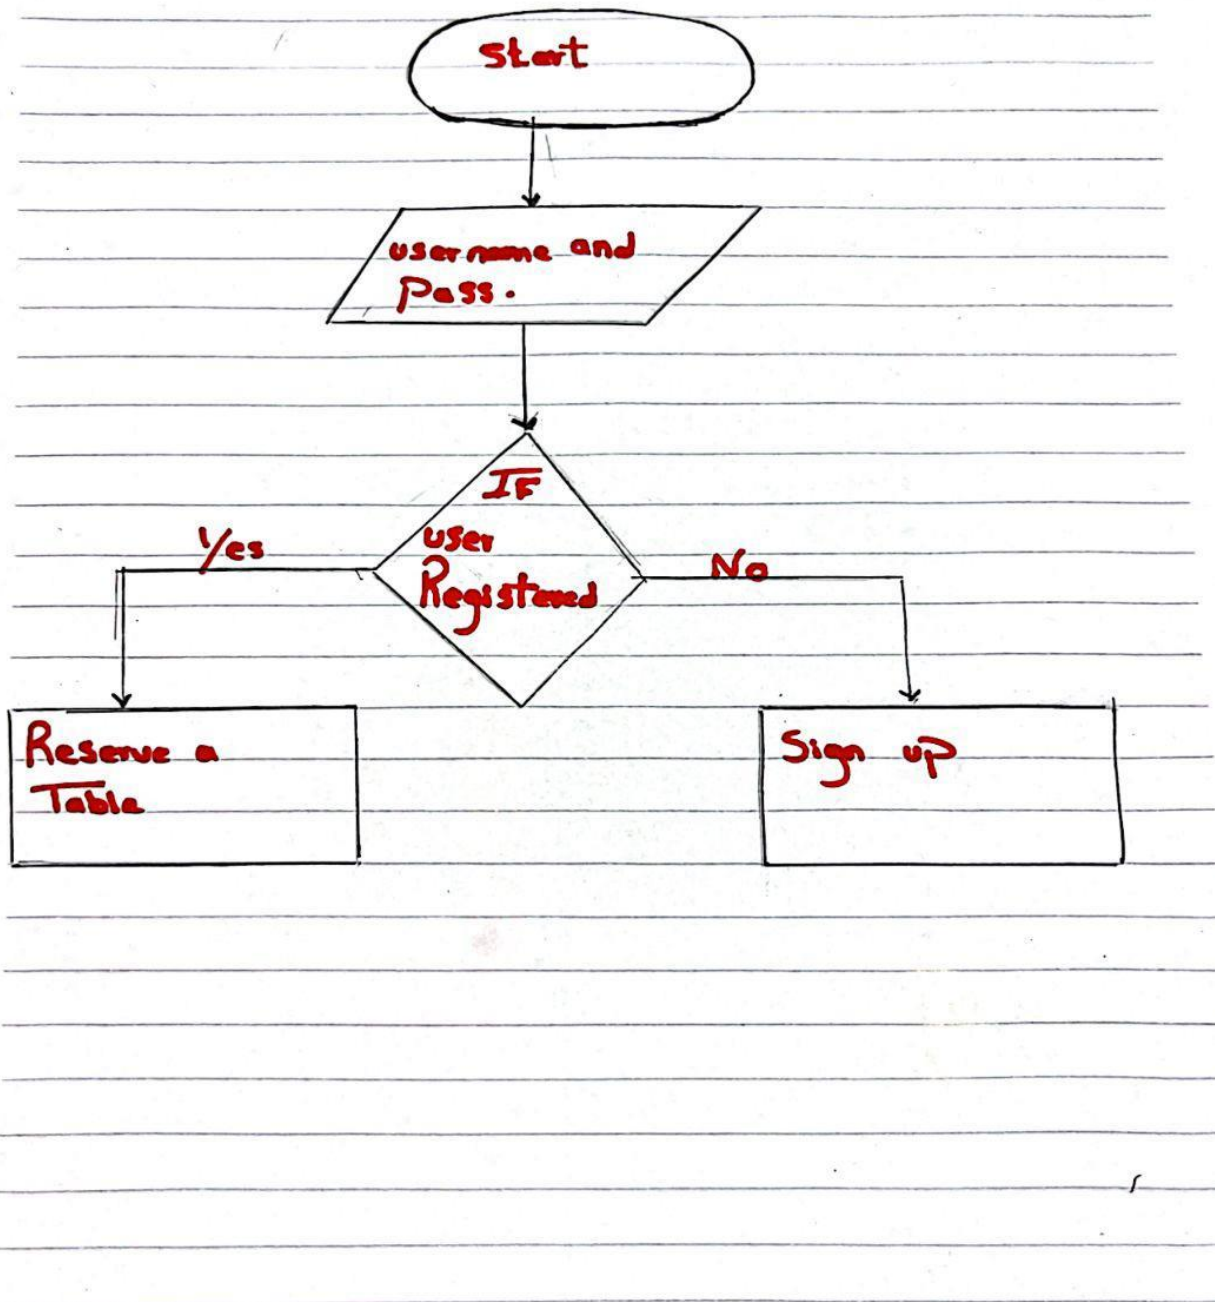 Start
username and
Pass.
IF
user
Registered
Yes
No
Reserve a
Table
Sign up